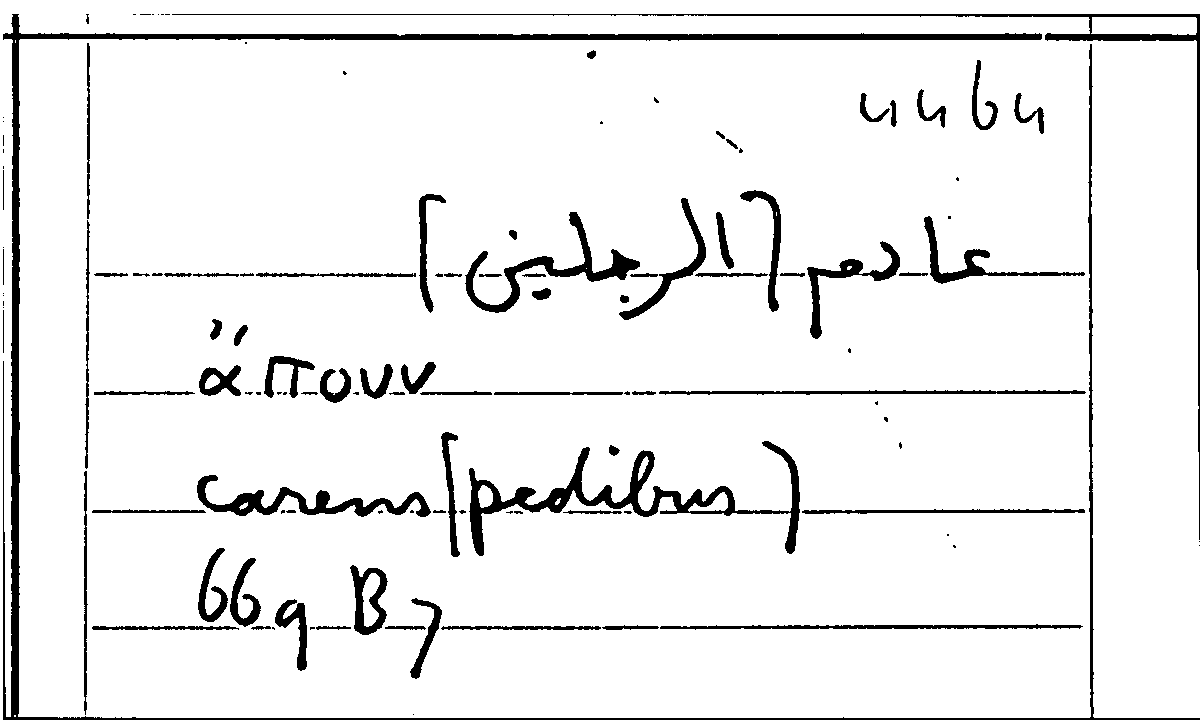 4464
عادم [الرجلين]
ἄπουν
carens (pedibus)
669 B 7